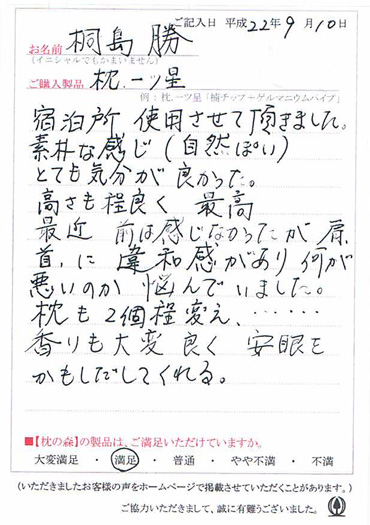 ご記入日 平成22年9月10日
お名前 桐島 勝
(イニシャルでもかまいません)
ご購入製品 枕.一ツ星
例：枕.一ツ星「楠チップ＋ゲルマニウムパイプ」
宿泊所 使用させて頂きました。
素朴な感じ(自然ぽい)
とても気分が良かった。
高さも程良く 最高
最近 前は感じなかったが肩、
首,に違和感があり何が
悪いのか 悩んでいました。
枕も2個程変え、……
香りも大変良く 安眠を
かもしだしてくれる。
■【枕の森】の製品は、ご満足いただけていますか。
大変満足 ・ 満足 ・ 普通 ・ やや不満 ・ 不満
(いただきましたお客様の声をホームページで掲載させていただくことがあります。)
ご協力いただきまして、誠に有難うございました。